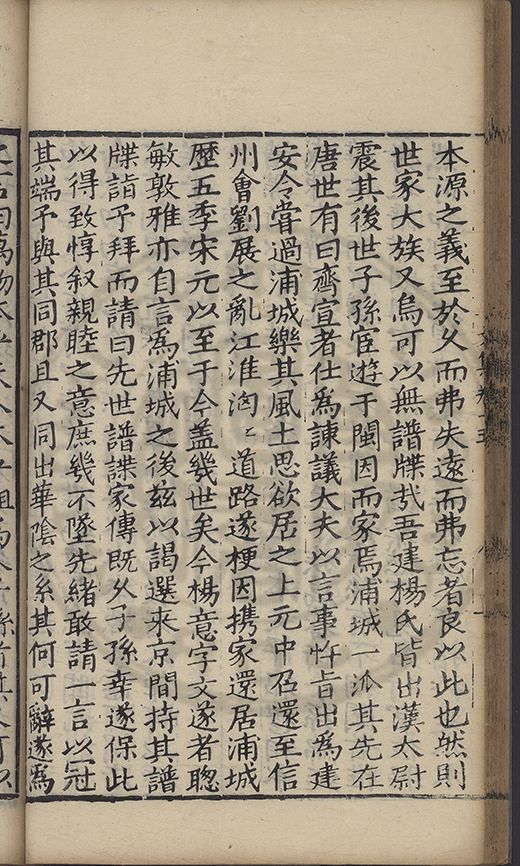 本源之義至於久而弗失遠而弗忘者良以此也然則
世家大族又烏可以無譜牒哉吾建楊氏皆出漢太尉
震其後世子孫宦遊于閩因而家焉浦城一派其先在
唐世有曰齊宣者仕為諫議大夫以言事忤旨出為建
安令嘗過浦城樂其風土思欲居之上元中召還至信
州會劉展之亂江淮洶〻道路遂梗因携家還居浦城
歷五季宋元以至于今盖幾世矣今楊意字文遂者聰
敏敦雅亦自言為浦城之後兹以謁選来京間持其譜
牒詣予拜而請曰先世譜諜家傳既久子孫幸遂保此
以得致惇叙親睦之意庶幾不墜先緒敢請一言以冠
其端予與其同郡且又同出華陰之系其何可辭遂為